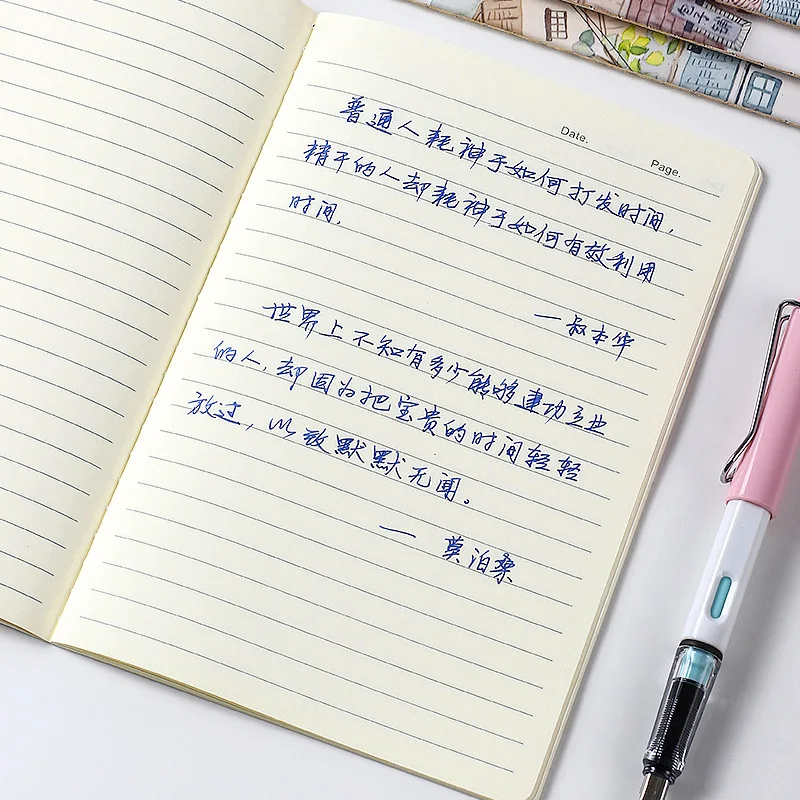 Date.
Page.
普通人耗神于如何打发时间，
精干的人却耗神于如何有效利用
时间.
—叔本华
世界上不知有多少能够建功立业
的人,却因为把宝贵的时间轻轻
放过,以致默默无闻。
— 莫泊桑